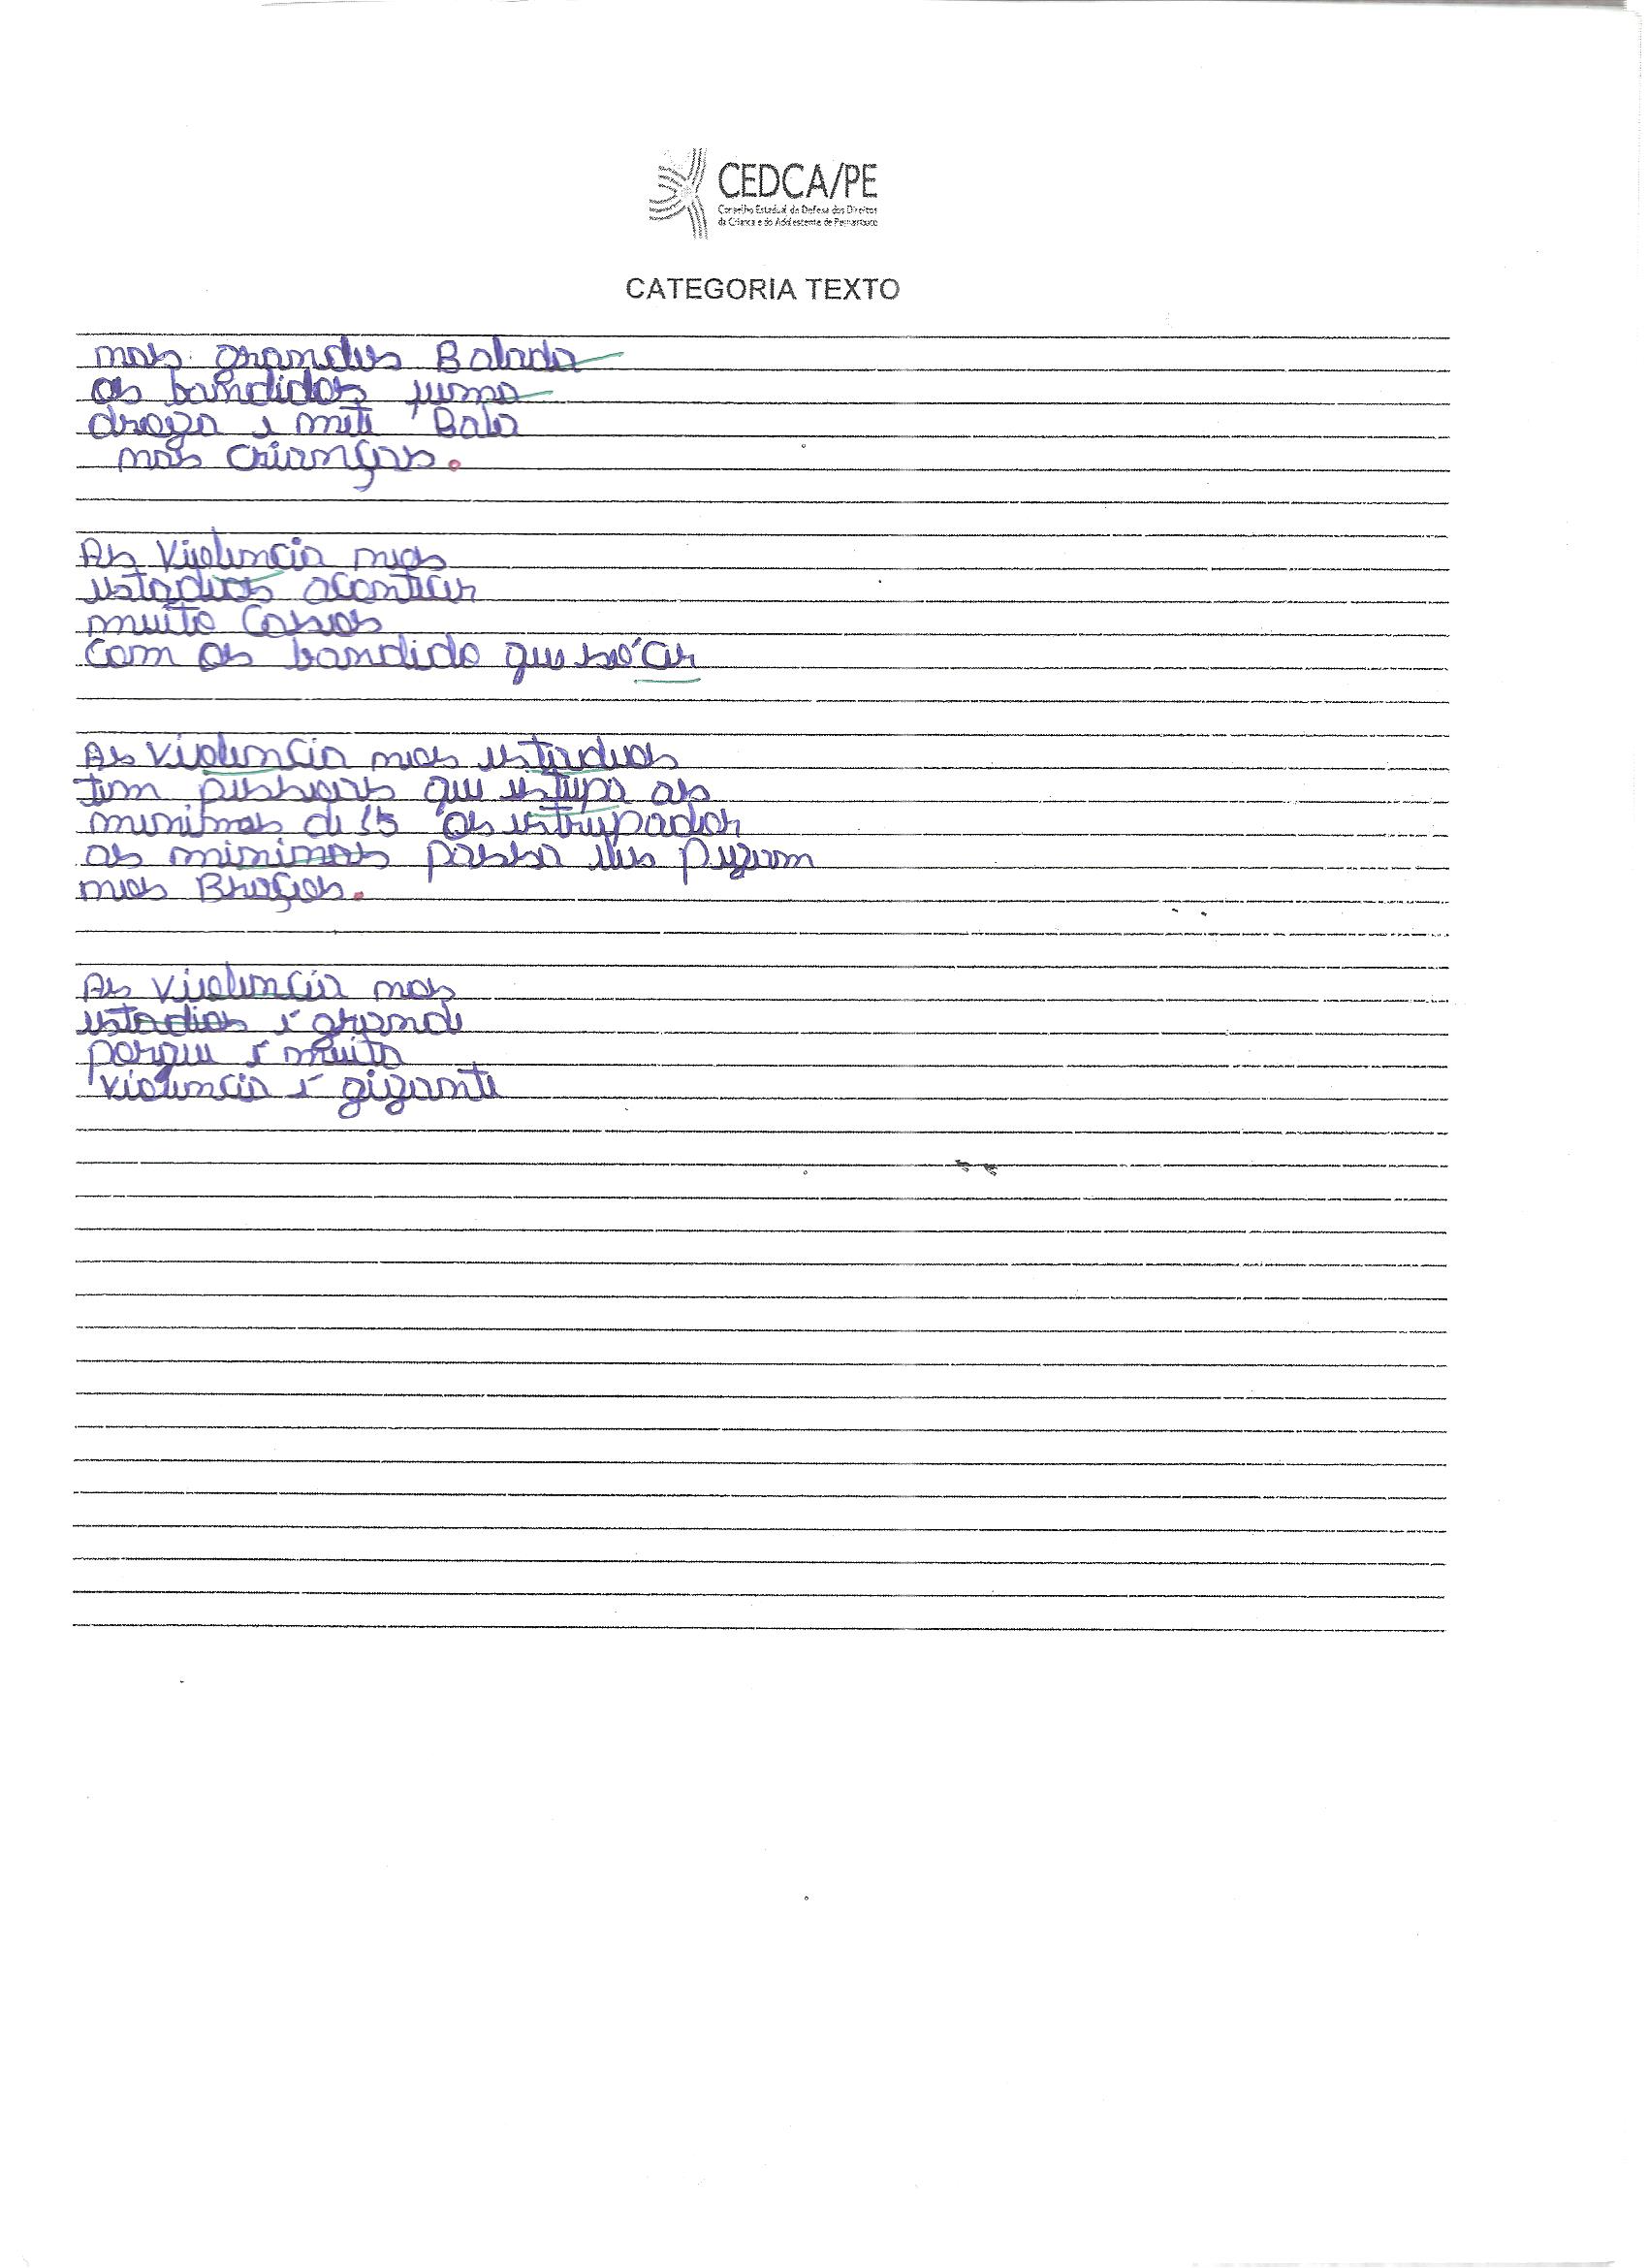 CEDCA/PE
Conselho Estadual de Defesa dos Direitos
da Criança e do Adolescente de Pernambuco
CATEGORIA TEXTO
nas grandes Balada
os bandidos fuma
droga e mete Bala
nas crianças.
As Violencia nos
estadios acontecer
muito Casos
com os bandido que só
As violencia nos estardios
tem pessoas que estupa as
meninas de 15 os estrupador
as meninas passa eles pegam
nos Braços.
As violencia nos
estadios é grande
porque é muita
violencia é gigante